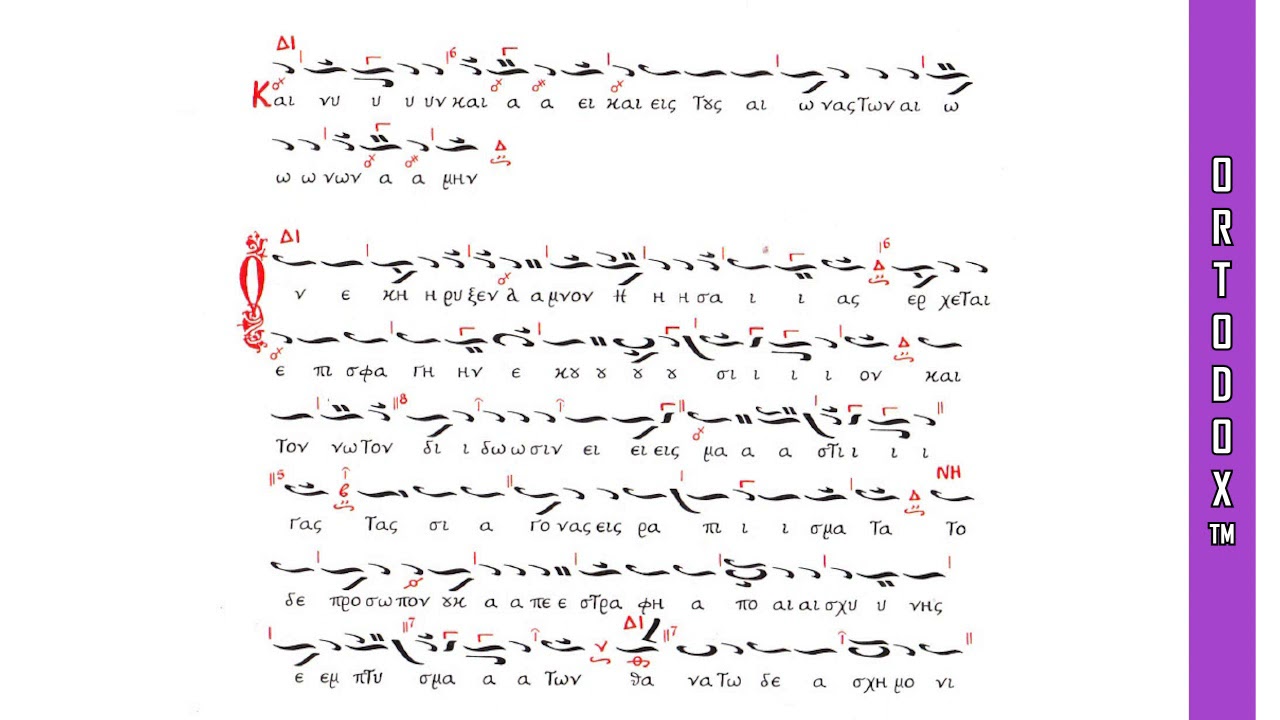 ΔΙ
Και νυ υ υ υν και α α ει και εις τȣς αι ω νας των αι ω
ω ω νων α α μην
ΔΙ
Ον ε κη η ρυ ξεν α α μνον Η η η σα ι ι ας ερ χεται
ε πι σφα γη ην ε κȣ ȣ ȣ ȣ σι ι ι ι ον και
τον νω τον δι ι δω ω σιν ει ει εις μα α α στι ι ι ι
γας τας σι α γο νας εις ρα πι ι ι σμα τα το
ΝΗ
δε προ σω πον ȣκ α α πε ε στρα φη α πο αι αι σχυ υ νης
ΔΙ
ε εμ πτυ σμα α α των θα να τω δε α σχη μο νι
ORTODOX™